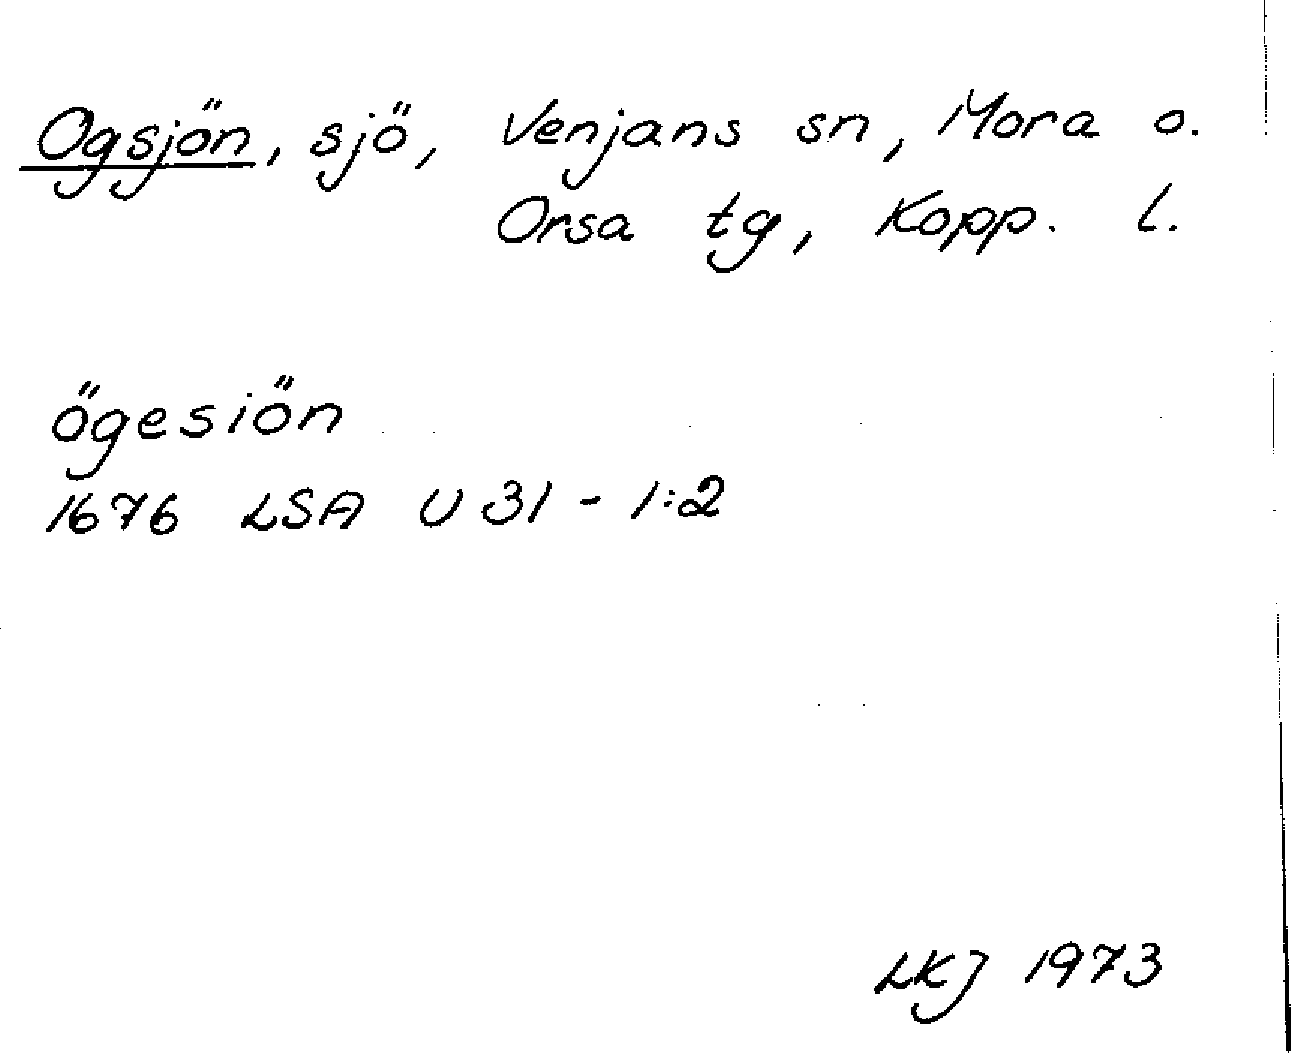 Ogsjön, sjö, Venjans sn, Mora o.
Orsa tg, Kopp. l.
ögesiön
1676 LSA U 31 - 1:2
LKJ 1973